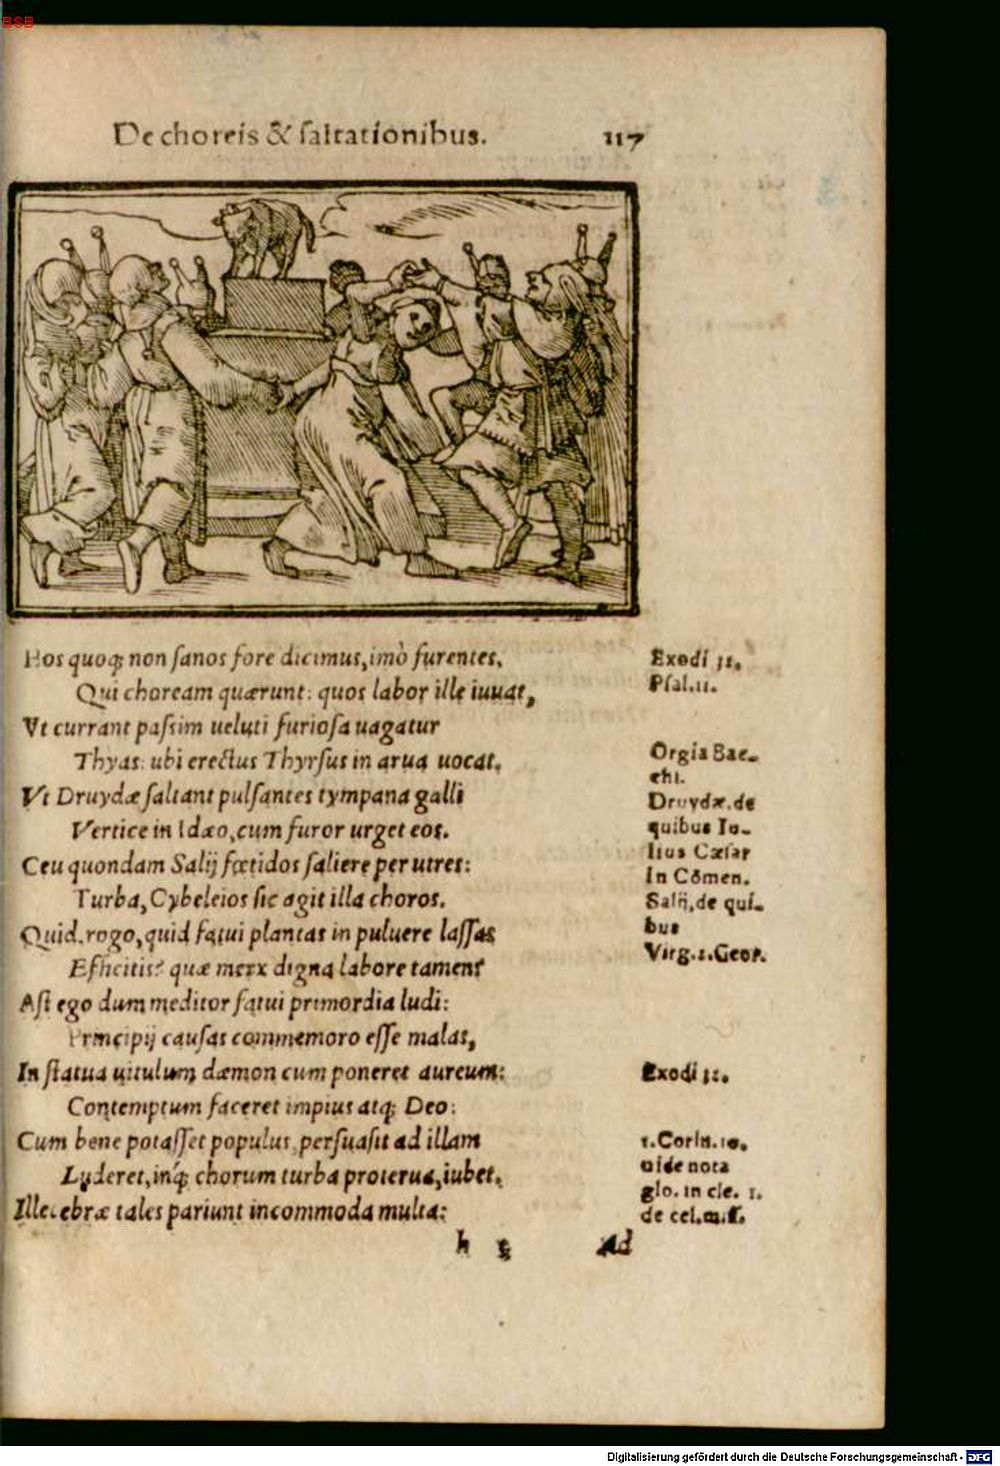 BSB
De choreis & saltationibus. 117
Hos quoq; non sanos fore dicimus, imò furentes,
Qui choream quærunt: quos labor ille iuuat,
Vt currant passim ueluti furiosa uagatur
Thyas: ubi erectus Thyrsus in arua uocat.
Vt Druydæ saltant pulsantes tympana galli
Vertice in Idæo, cum furor urget eos.
Ceu quondam Salij fœtidos saliere per utres:
Turba, Cybeleios sic agit illa choros.
Quid, rogo, quid fatui plantas in puluere lassas
Efficitis? quæ merx digna labore tamen?
Ast ego dum meditor fatui primordia ludi:
Principij causas commemoro esse malas,
In statua uitulum dæmon cum poneret aureum:
Contemptum faceret impius atq; Deo:
Cum bene potasset populus, persuasit ad illam
Luderet, inq́; chorum turba proterua, iubet.
Illecebræ tales pariunt incommoda multa:
h Ad
Exodi 32.
Psal. 11.
Orgia Bac-
chi.
Druydæ. de
quibus Iu-
lius Cæsar
in Cōmen.
Salij, de qui-
bus
Virg. 2. Geor.
Exodi 32.
1. Corin. 10.
uide nota
glo. in cle. 1.
de cel. m. ſ.
Digitalisierung gefördert durch die Deutsche Forschungsgemeinschaft - DFG